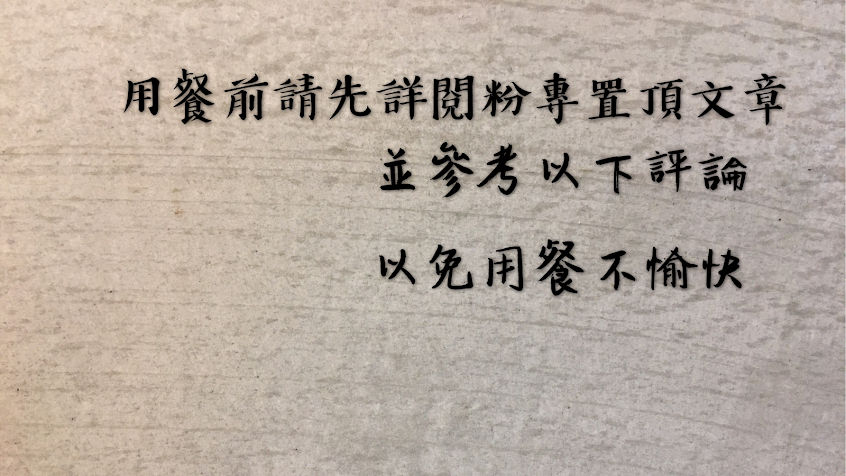 用餐前請先詳閱粉專置頂文章
並參考以下評論
以免用餐不愉快